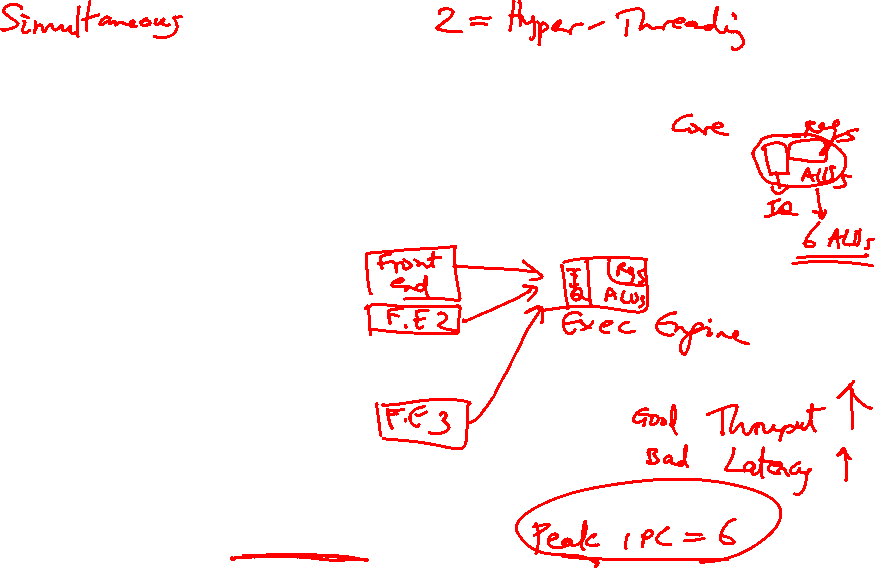 Simultaneous
2 = Hyper-Threading
Core
Regs
ALUs
IQ
6 ALUs
Front
end
IQ
Regs
ALUs
F.E 2
Exec Engine
F.E 3
Good Thruput ↑
Bad Latency ↑
Peak IPC = 6